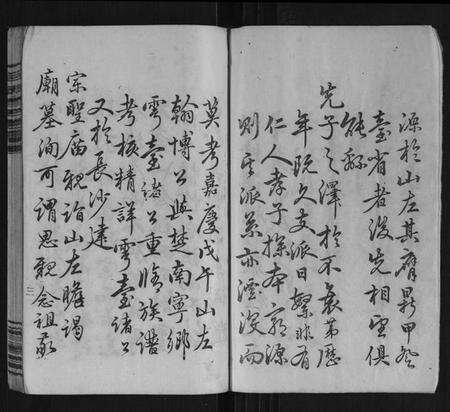 源於山左其膺鼎甲登
臺省者後先相望俱
能繇
先子之澤於不衰第歷
年既久支派日繁非有
仁人孝子探本窮源
則其派系亦湮沒而
莫考嘉慶戊午山左
翰博公與楚南寧鄉
雲臺諸公重脩族譜
考核精詳雲臺諸公
又於長沙建
宗聖廟親詣山左瞻謁
廟墓洵可謂思親念祖敦